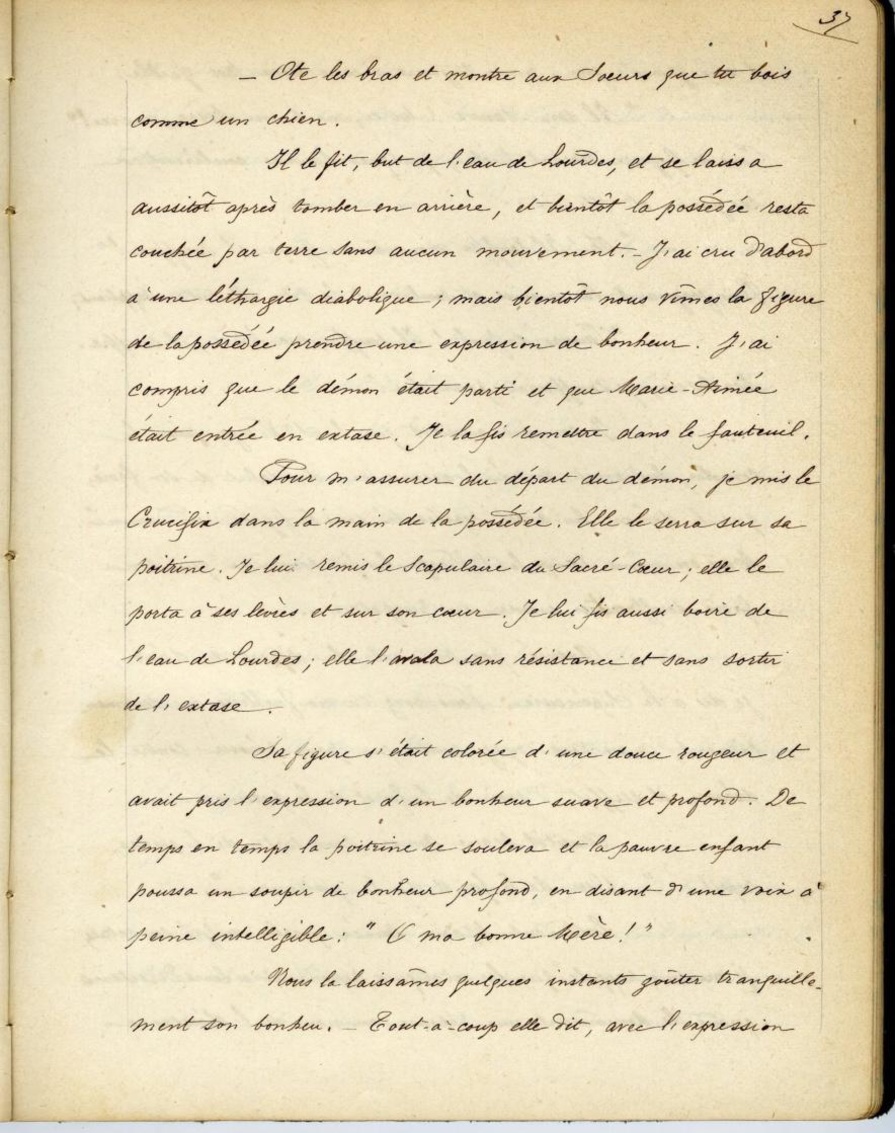 37
— Ote les bras et montre aux Sœurs que tu bois
comme un chien.
Il le fit, but de l'eau de Lourdes, et se laissa
aussitôt après tomber en arrière, et bientôt la possédée resta
couchée par terre sans aucun mouvement. — J'ai cru d'abord
à une léthargie diabolique ; mais bientôt nous vîmes la figure
de la possédée prendre une expression de bonheur. J'ai
compris que le démon était parti et que Marie-Aimée
était entrée en extase. Je la fis remettre dans le fauteuil.
Pour m'assurer du départ du démon, je mis le
Crucifix dans la main de la possédée. Elle le serra sur sa
poitrine. Je lui remis le Scapulaire du Sacré-Cœur ; elle le
porta à ses lèvres et sur son cœur. Je lui fis aussi boire de
l'eau de Lourdes ; elle l'avala sans résistance et sans sortir
de l'extase.
Sa figure s'était colorée d'une douce rougeur et
avait pris l'expression d'un bonheur suave et profond. De
temps en temps la poitrine se souleva et la pauvre enfant
poussa un soupir de bonheur profond, en disant d'une voix à
peine intelligible : " O ma bonne Mère ! "
Nous la laissâmes quelques instants goûter tranquille-
ment son bonheu. — Tout-à-coup elle dit, avec l'expression